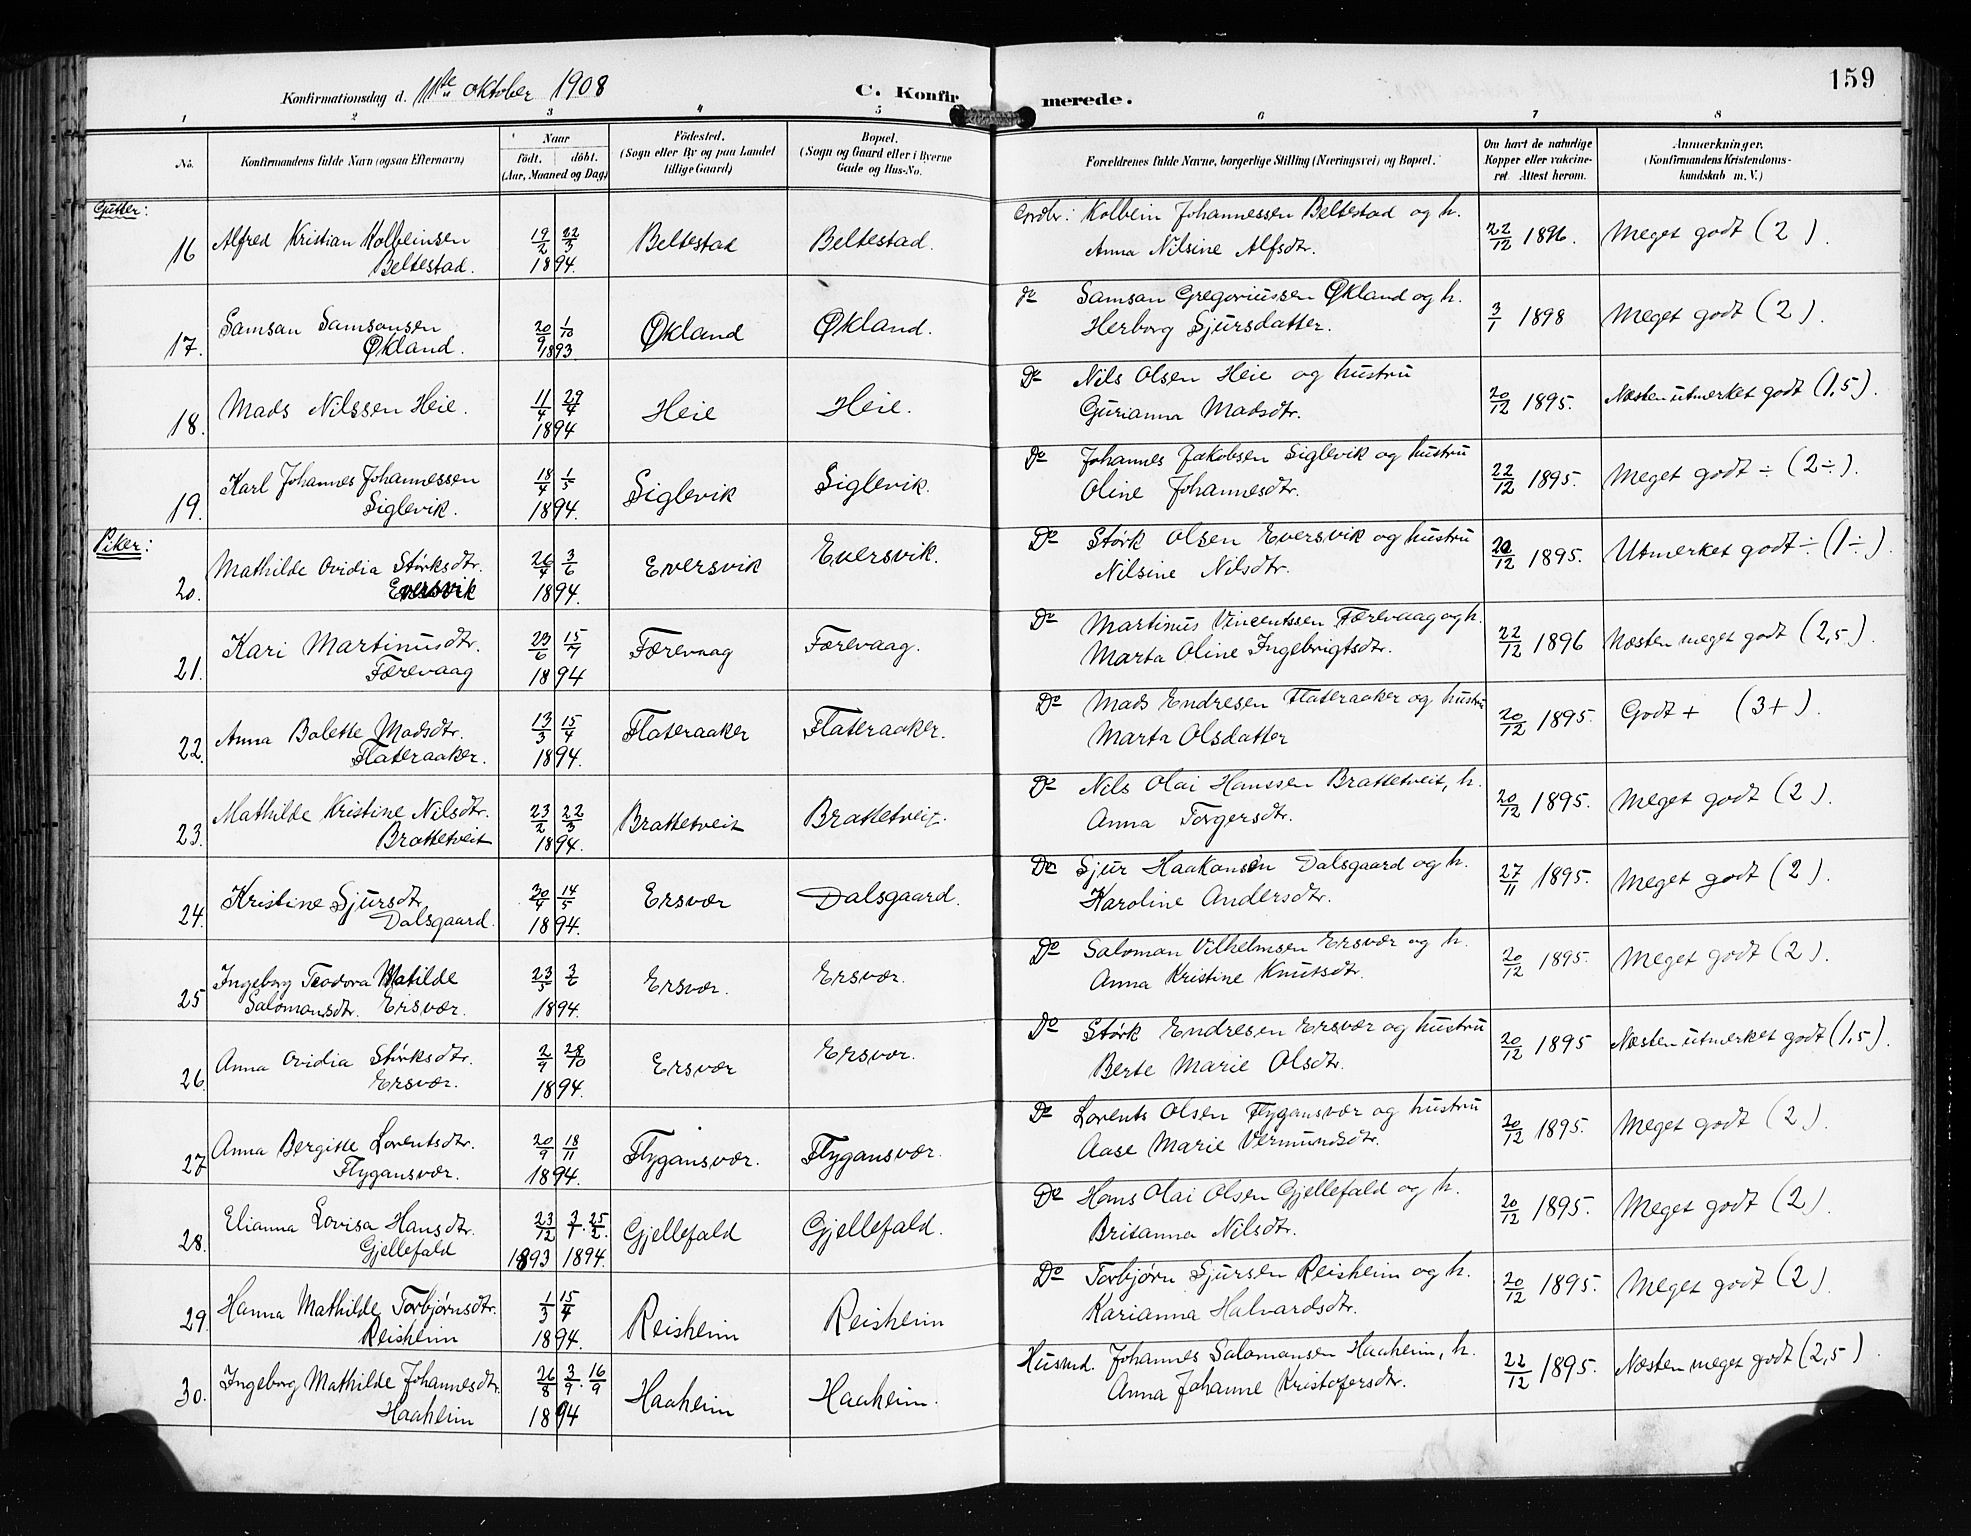 159
Konfirmationsdag d. 11te oktober 1908 C. Konfirmerede.
1 2 3 4 5 6 7 8
No. Konfirmandens fulde Navn (ogsaa Efternavn) Naar født. døbt. (Aar, Maaned og Dag) Fødested. (Sogn eller By og paa Landet tillige Gaard) Bopæl. (Sogn og Gaard eller i Byerne Gade og Hus-No. Forældrenes fulde Navne, borgerlige Stilling (Næringsvei) og Bopæl. Om havt de naturlige Kopper eller vakcineret. Attest herom. Anmærkninger. (Konfirmandens Kristendomskundskab m. V.)
Gutter:
16 Alfred Kristian Kolbeinsen Beltestad. 19/2 22/3 1894. Beltestad Beltestad. Grdbr: Kolbein Johannessen Beltestad og h. Anna Nilsine Alfsdtr. 22/12 1896. Meget godt (2).
17. Samson Samsonsen Økland. 20/9 1/10 1893 Økland Økland. Do Samson Gregoriussen Økland og h. Herborg Sjursdatter. 3/1 1898 Meget godt (2).
18. Mads Nilssen Heie. 11/4 29/4 1894 Heie Heie. Do Nils Olsen Heie og hustru Gurianna Madsdtr. 20/12 1895. Næsten utmerket godt (1,5).
19. Karl Johannes Johannessen Siglevik. 18/4 1/5 1894. Siglevik Siglevik. Do Johannes Jakobsen Siglevik og hustru Oline Johannesdtr. 22/12 1895. Meget godt ÷ (2÷).
Piker:
20. Mathilde Ovidia Størksdtr. Eversvik 26/4 3/6 1894. Eversvik Eversvik. Do Størk Olsen Eversvik og hustru Nilsine Nilsdtr. 20/12 1895. Utmerket godt ÷ (1÷).
21. Kari Martinusdtr. Færevaag 23/6 15/7 1894 Færevaag Færevaag. Do Martinus Vincentssen Færevaag og h. Marta Oline Ingebrigtsdtr. 22/12 1896 Næsten meget godt (2,5).
22. Anna Bolette Madsdtr. Flateraaker. 13/3 15/4 1894. Flateraaker Flateraaker. Do Mads Endresen Flateraaker og hustru Marta Olsdatter 20/12 1895. Godt + (3+).
23. Mathilde Kristine Nilsdtr. Brattetveit 23/2 22/3 1894. Brattetveit Brattetveit. Do Nils Olai Hanssen Brattetveit, h. Anna Torgersdtr. 20/12 1895. Meget godt (2).
24. Kristine Sjursdtr. Dalsgaard. 30/4 14/5 1894. Ersvær Dalsgaard. Do Sjur Haakonsen Dalsgaard og h. Karoline Andersdtr. 27/11 1895. Meget godt (2).
25 Ingeborg Teodora Matilde Salomonsdtr. Ersvær. 23/5 3/6 1894. Ersvær. Ersvær. Do Salomon Vilhelmsen Ersvær og h. Anna Kristine Knutsdtr. 20/12 1895. Meget godt (2).
26. Anna Ovidia Størksdtr. Ersvær. 2/9 28/10 1894. Ersvær Ersvær. Do Størk Endresen Ersvær og hustru Berte Marie Olsdtr. 20/12 1895 Næsten utmerket godt (1,5).
27 Anna Bergitte Lorentsdtr. Flygansvær. 20/9 18/11 1894. Flygansvær. Flygansvær. Do Lorents Olsen Flygansvær og hustru Aase Marie Vermundsdtr. 20/12 1895. Meget godt (2).
28. Elianna Lovisa Hansdtr. Gjellefald 23/12 1893 7/1. 25/2. 1894. Gjellefald Gjellefald. Do Hans Olai Olsen Gjellefald og h. Britanna Nilsdtr. 20/12 1895. Meget godt (2).
29. Hanna Mathilde Torbjørnsdtr. Reisheim 1/3 15/4 1894. Reisheim Reisheim Do Torbjørn Sjursen Reisheim og h. Karianna Halvardsdtr. 20/12 1895. Meget godt (2).
30. Ingeborg Mathilde Johannesdtr. Haaheim 26/8 3/9. 16/9 1894 Haaheim Haaheim. Husmd. Johannes Salomonsen Haaheim, h. Anna Johanne Kristofersdtr. 22/12 1895. Næsten meget godt (2,5).